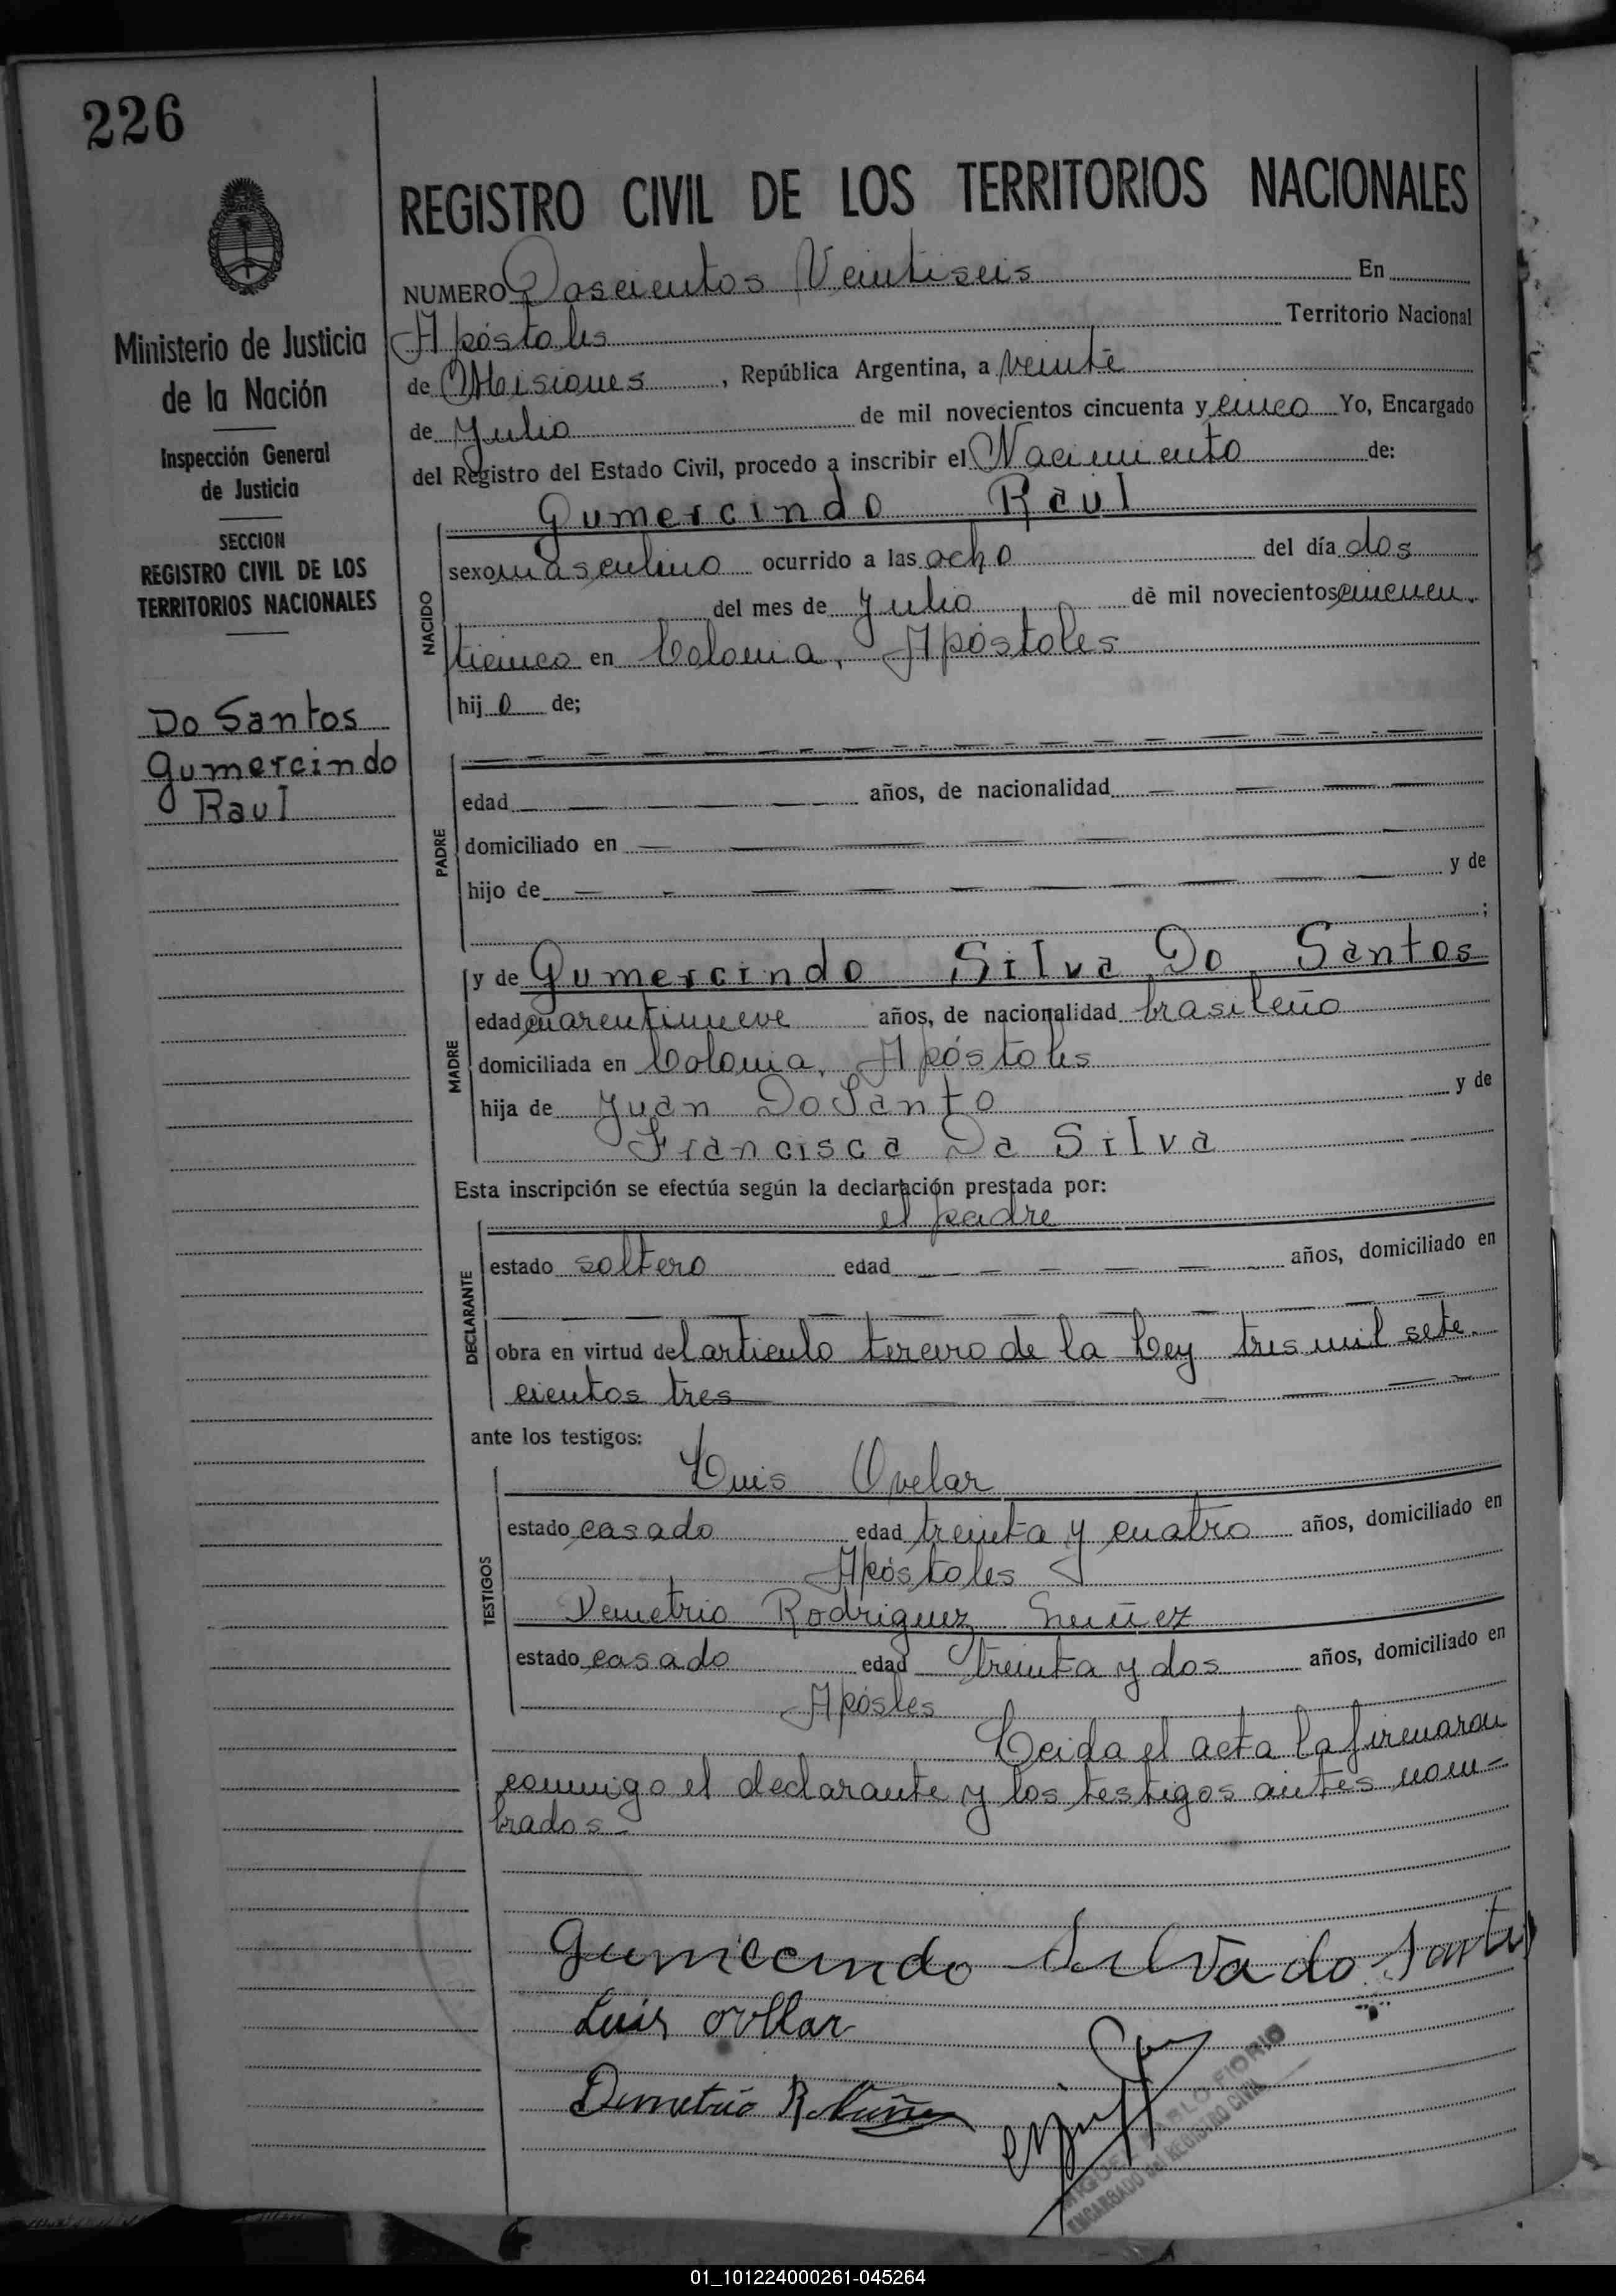 226
REGISTRO CIVIL DE LOS TERRITORIOS NACIONALES
NUMERO Doscientos Veintiseis En
Apóstoles Territorio Nacional
de Misiones, República Argentina, a veinte
de Julio de mil novecientos cincuenta y cinco Yo, Encargado
del Registro del Estado Civil, procedo a inscribir el Nacimiento de:
Ministerio de Justicia
de la Nación
Inspección General
de Justicia
SECCION
REGISTRO CIVIL DE LOS
TERRITORIOS NACIONALES
Do Santos
Gumercindo
Raul
NACIDO
Gumercindo Raúl
sexo masculino ocurrido a las ocho del día dos
del mes de Julio de mil novecientos cincuen
ticinco en Colonia, Apóstoles
hijo de;
PADRE
edad años, de nacionalidad
domiciliado en
hijo de y de
;
MADRE
y de Gumercindo Silva Do Santos
edad cuarentinueve años, de nacionalidad brasileño
domiciliada en Colonia, Apóstoles
hija de Juan Do Santo y de
Francisca Da Silva
Esta inscripción se efectúa según la declaración prestada por:
DECLARANTE
el padre
estado soltero edad años, domiciliado en
obra en virtud del articulo tercero de la Ley tres mil sete
cientos tres
ante los testigos:
TESTIGOS
Luis Ovelar
estado casado edad treinta y cuatro años, domiciliado en
Apóstoles
Demetrio Rodriguez
estado casado edad treinta y dos años, domiciliado en
Apósles
Leida el acta la firmaron
conmigo el declarante y los testigos antes nom-
brados-
Gumercindo Silva do Santos
Luis ovllar
Demetrio R. Núñez
PABLO FIORIO
ENCARGADO DEL REGISTRO CIVIL
01_101224000261-045264